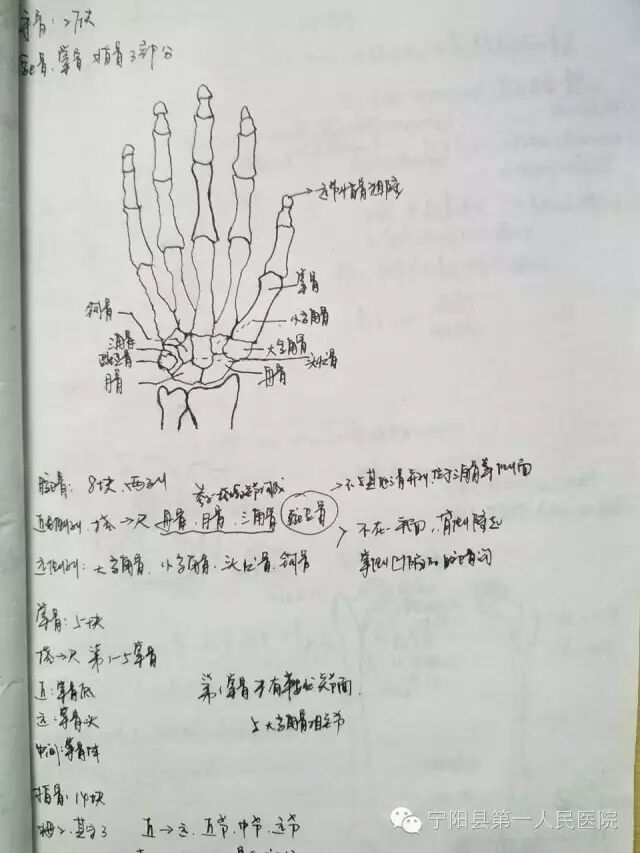 手骨：27块
腕骨、掌骨、指骨3部分
远节指骨粗隆
掌骨
钩骨
小多角骨
三角骨
大多角骨
豌豆骨
头状骨
月骨
舟骨
腕骨：8块、两列
参与桡腕关节组成
近侧列：桡→尺 舟骨、月骨、三角骨 豌豆骨
不在一平面，背侧隆起
远侧列：大多角骨、小多角骨、头状骨、钩骨
掌骨：5块
桡→尺 第1-5掌骨
近：掌骨底
第1掌骨 关节面
远：掌骨头
与大多角骨相关节
中间：掌骨体
指骨：14块
拇2、其余3 近→远 近节、中节、远节
宁阳县第一人民医院